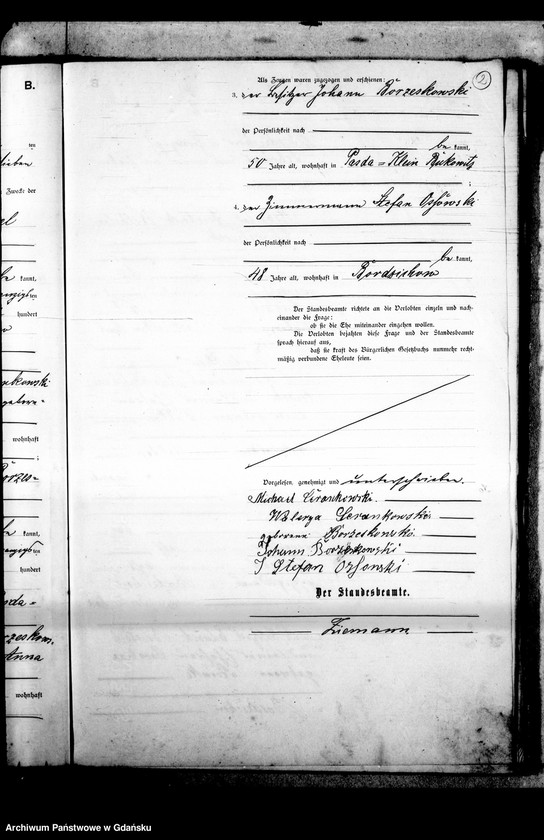 B.
ten
Zwecke der
kannt,
ten
hundert
wohnhaft
;
kannt,
ten
hundert
wohnhaft
2
Als Zeugen waren zugezogen und erschienen:
3. der Besitzer Johann Borzeskowski
der Persönlichkeit nach
be kannt,
50 Jahre alt, wohnhaft in Pasda=Klein Bukowitz
;
4. der Zimmermann Stefan Ossowski
der Persönlichkeit nach
be kannt,
48 Jahre alt, wohnhaft in Bordzichow
Der Standesbeamte richtete an die Verlobten einzeln und nach-
einander die Frage:
ob sie die Ehe miteinander eingehen wollen.
Die Verlobten bejahten diese Frage und der Standesbeamte
sprach hierauf aus,
daß sie kraft des Bürgerlichen Gesetzbuchs nunmehr recht-
mäßig verbundene Eheleute seien.
Vorgelesen, genehmigt und unterschrieben.
Michael Cirankowski.
Walerya Cerankowska
geborene Borzeskowska
Johann Borzeskowski
Stefan Ossowski
Der Standesbeamte.
Ziemann
Archiwum Państwowe w Gdańsku